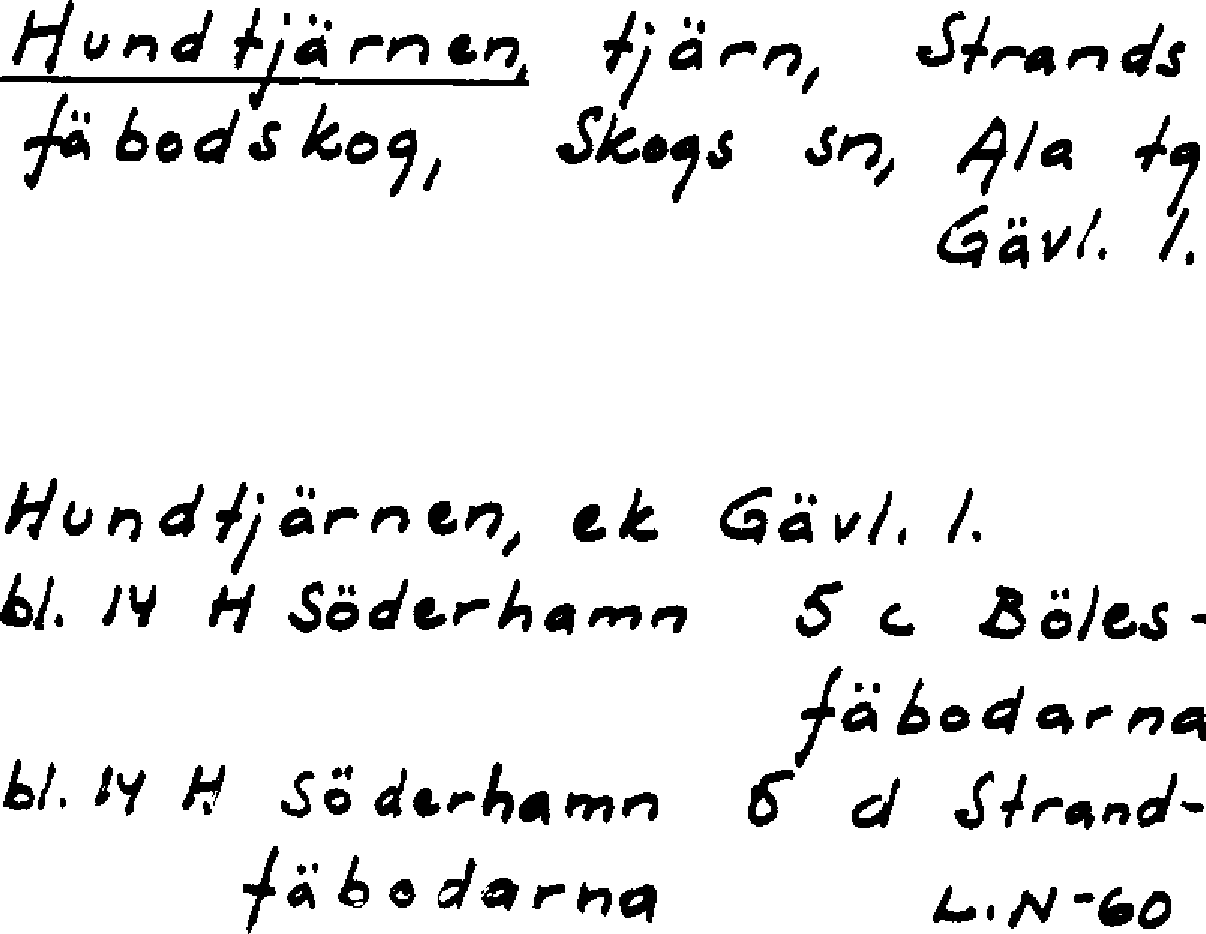 Hundtjärnen, tjärn, Strands
fäbodskog, Skogs sn, Ala tg
Gävl. l.
Hundtjärnen, ek Gävl. l.
bl. 14 H Söderhamn 5 c Böles-
fäbodarna
bl. 14 H Söderhamn 5 d Strand-
fäbodarna L.N-60